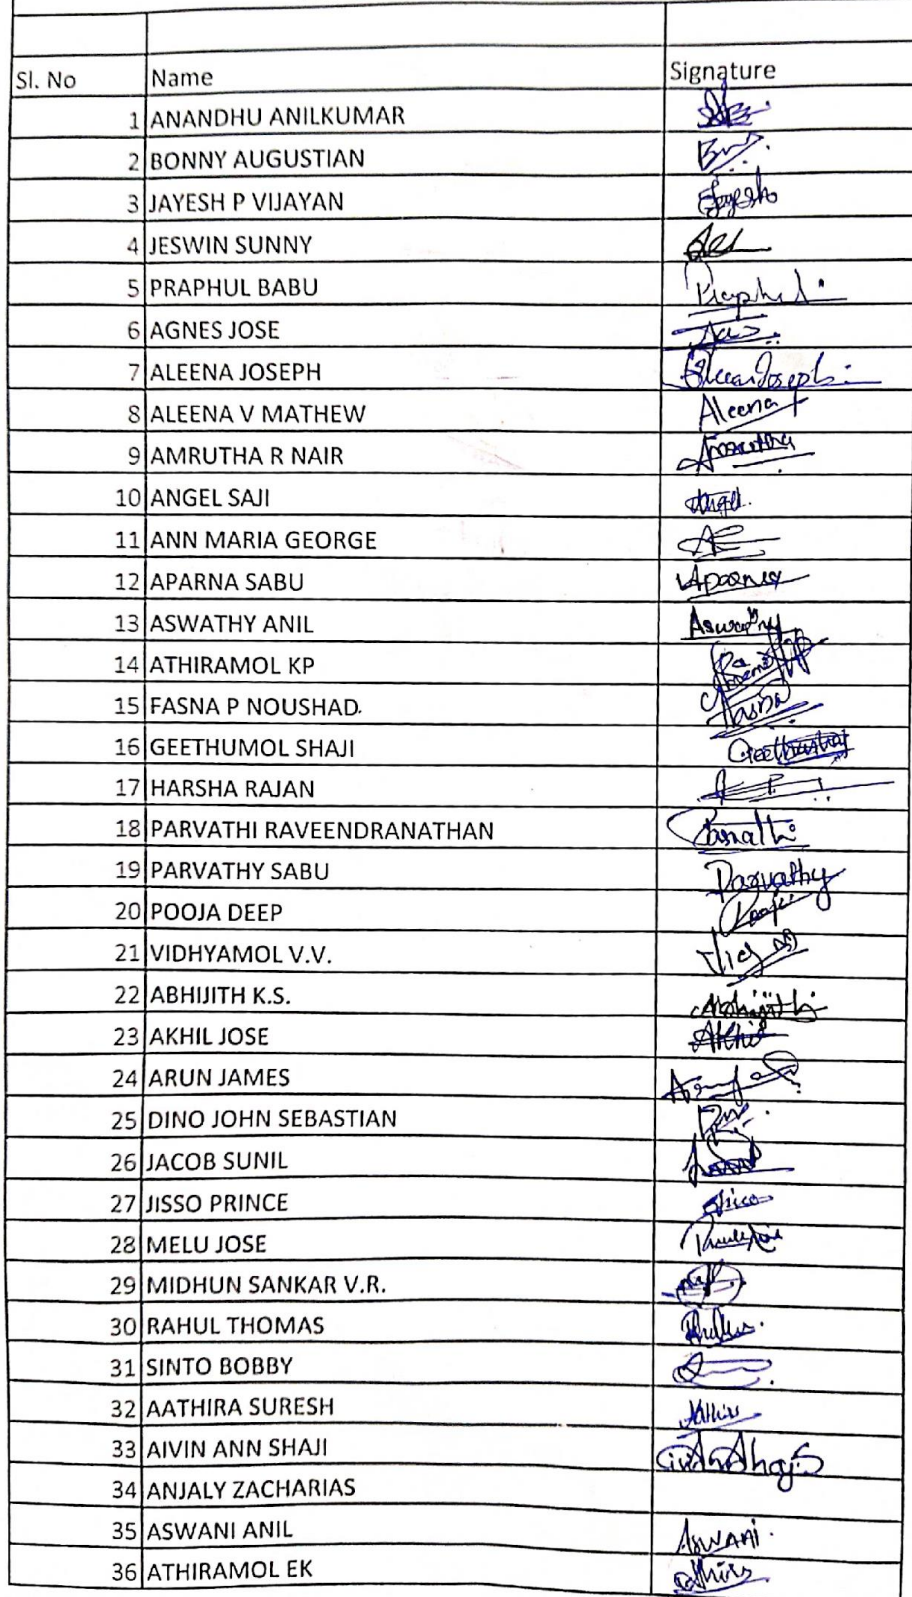 Sl. No Name Signature
1 ANANDHU ANILKUMAR
2 BONNY AUGUSTIAN
3 JAYESH P VIJAYAN Jayesh
4 JESWIN SUNNY
5 PRAPHUL BABU Praphul
6 AGNES JOSE
7 ALEENA JOSEPH Aleena Joseph
8 ALEENA V MATHEW Aleena
9 AMRUTHA R NAIR Amrutha
10 ANGEL SAJI Angel
11 ANN MARIA GEORGE
12 APARNA SABU Aparna
13 ASWATHY ANIL Aswathy
14 ATHIRAMOL KP
15 FASNA P NOUSHAD. Fasna
16 GEETHUMOL SHAJI
17 HARSHA RAJAN
18 PARVATHI RAVEENDRANATHAN Parvathi
19 PARVATHY SABU Parvathy
20 POOJA DEEP Pooja
21 VIDHYAMOL V.V.
22 ABHIJITH K.S. Abhijith
23 AKHIL JOSE Akhil
24 ARUN JAMES
25 DINO JOHN SEBASTIAN
26 JACOB SUNIL
27 JISSO PRINCE
28 MELU JOSE
29 MIDHUN SANKAR V.R.
30 RAHUL THOMAS
31 SINTO BOBBY
32 AATHIRA SURESH
33 AIVIN ANN SHAJI
34 ANJALY ZACHARIAS
35 ASWANI ANIL Aswani
36 ATHIRAMOL EK